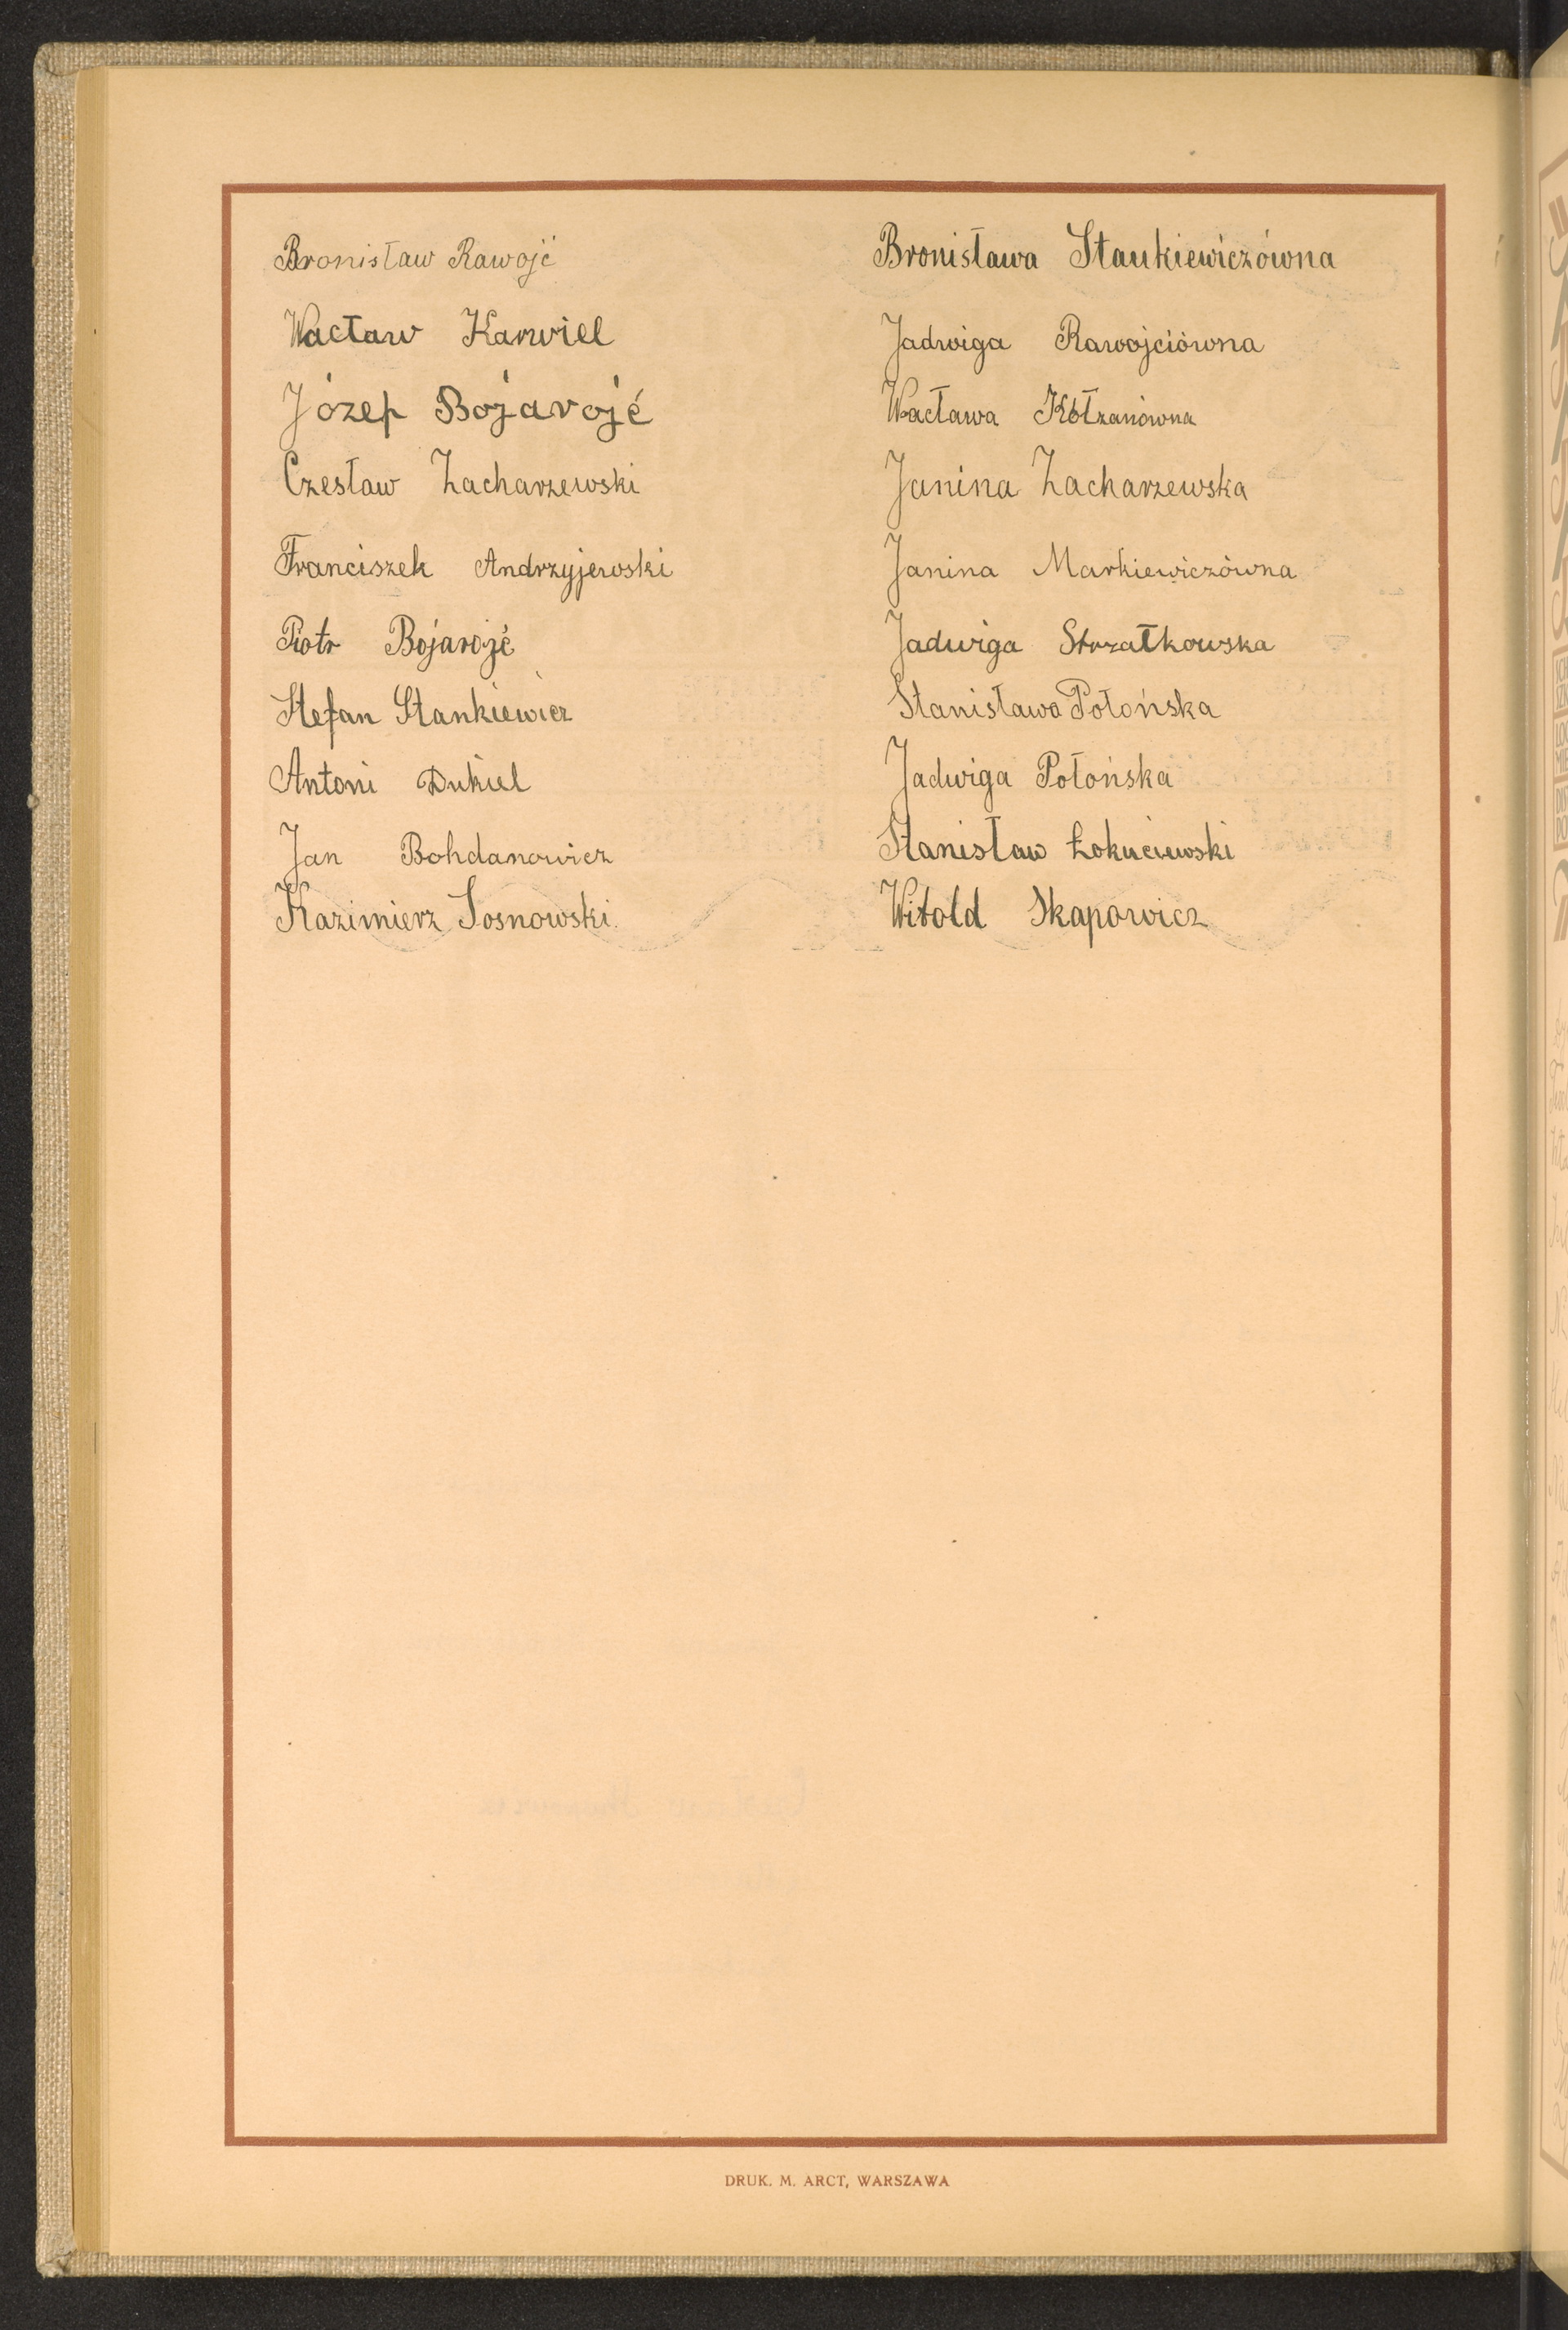 Bronisław Rawojć
Wacław Karwiel
Józef Bojarojć
Czesław Zacharzewski
Franciszek Andrzyjewski
Piotr Bojarojć
Stefan Stankiewicz
Antoni Dukiel
Jan Bohdanowicz
Kazimierz Sosnowski.
Bronisława Stankiewiczówna
Jadwiga Rawojciówna
Wacława Kołzanówna
Janina Zacharzewska
Janina Markiewiczówna
Jadwiga Strzałkowska
Stanisława Połońska
Jadwiga Połońska
Stanisław Łokuciewski
Witold Skapowicz
DRUK. M. ARCT, WARSZAWA